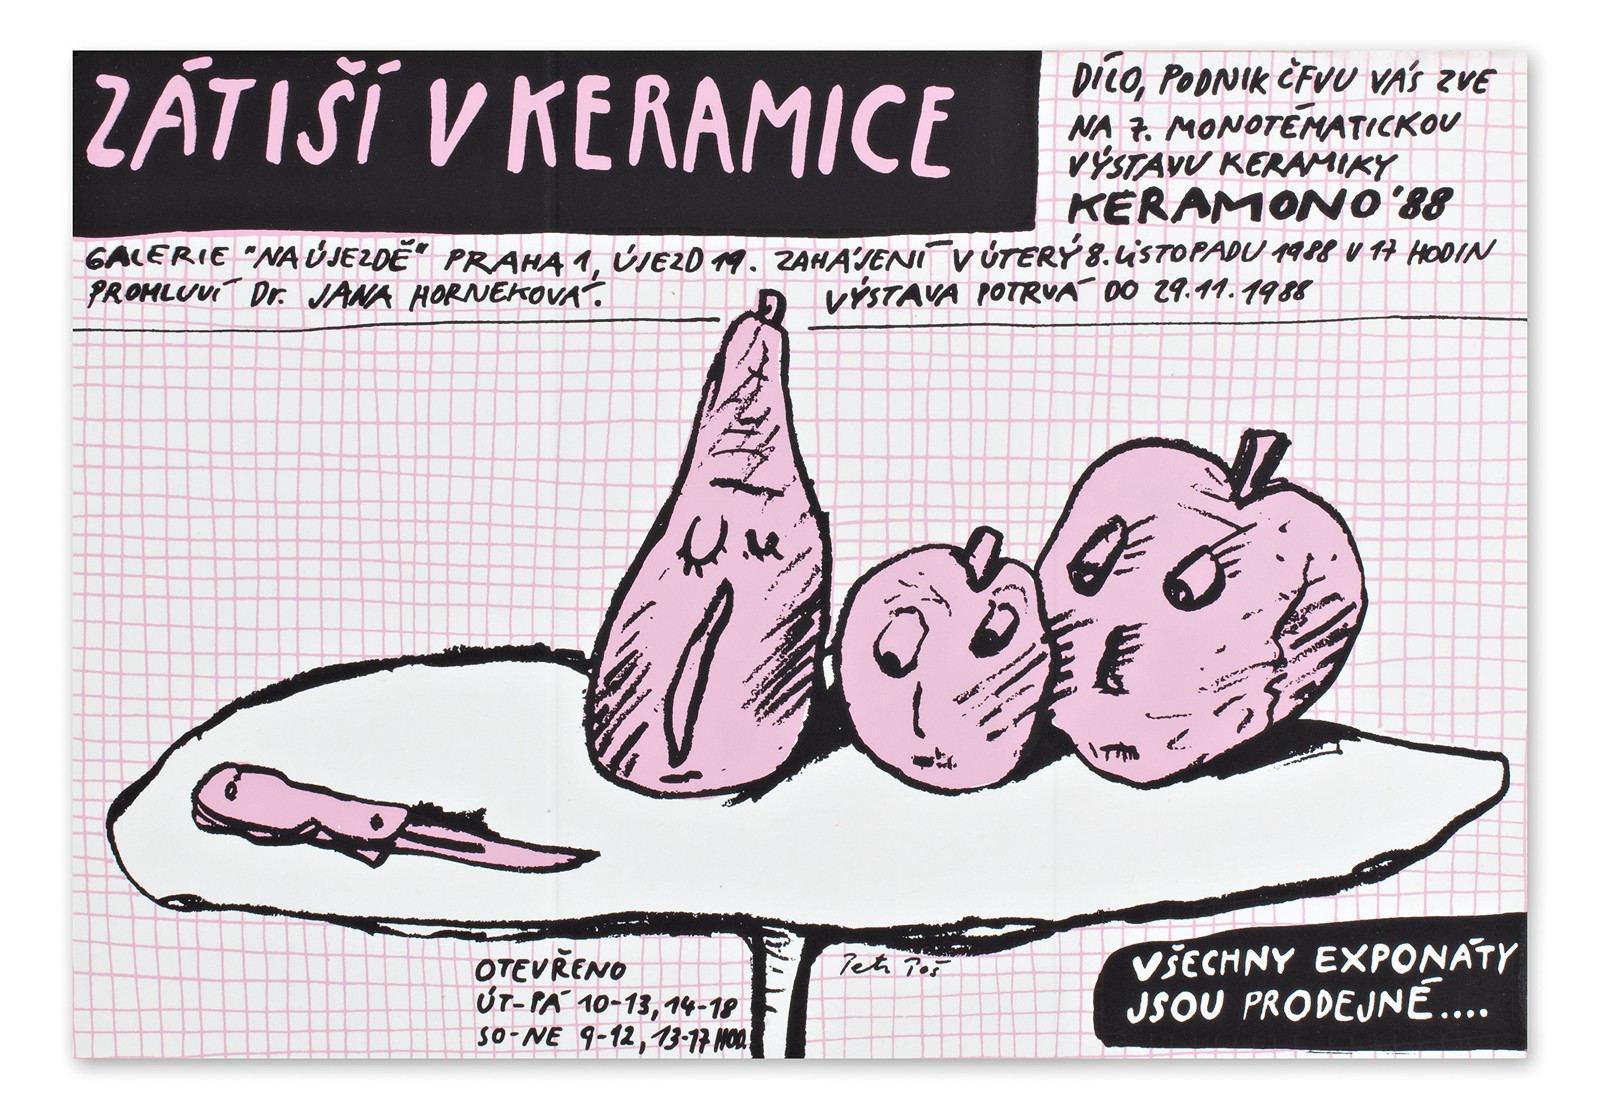 ZÁTIŠÍ V KERAMICE
DÍLO, PODNIK ČFVU VÁS ZVE
NA 7. MONOTÉMATICKOU
VÝSTAVU KERAMIKY
KERAMONO '88
GALERIE "NA ÚJEZDĚ" PRAHA 1, ÚJEZD 19. ZAHÁJENÍ V ÚTERÝ 8. LISTOPADU 1988 V 17 HODIN
PROMLUVÍ Dr. JANA HORNEKOVÁ. VÝSTAVA POTRVÁ DO 29.11.1988
OTEVŘENO
ÚT-PÁ 10-13, 14-18
SO-NE 9-12, 13-17 HOD.
Petr Poš
VŠECHNY EXPONÁTY
JSOU PRODEJNÉ....